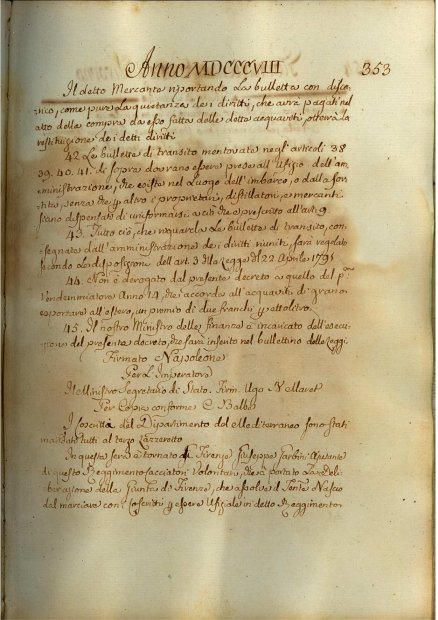 Anno MDCCCVIII 353
Il detto Mercante riportando la bulletta con disca-
rico, come pure la quietanza dei diritti, che avrà pagati nel
atto della compra da esso fatta delle dette acquaviti, otterrà la
restituzione dei detti diritti
42. Le bullette di transito mentovate negl'articoli 38
39. 40. 41. di sopra dovranno essere prese all'Ufizio dell'am-
ministrazione, che esiste nel luogo dell'imbarco, o dalla sor-
tita, senza che gl'altri proprietari, distillatori, e mercanti
siano dispensati di uniformarsi a ciò che è prescritto all'art. 9
43. Tutto ciò, che riguarda le bullette di transito, con-
segnate dall'amministrazione dei diritti riuniti, sarà regolato
secondo le disposizione dell'art. 3 della Legge del 22 Aprile 1791
44. Non è derogato dal presente decreto a quello del p.mo
Vendemmiatore Anno 14, che accorda all'acquaviti di grano
esportare all'estero, un premio di due franchi per ettolitro
45. Il nostro Ministro delle finanze è incaricato dell'esecu-
zione del presente decreto, che sarà inserito nel bullettino delle Leggi.
Firmato Napoleone
Per L'Imperatore
Il Ministro Segretario di Stato. Firm. Ugo Maret
Per Copia conforme C. Balbo
I coscritti del Dipartimento del Mediterraneo sono stati
mandati tutti al terzo Lazzeretto
In questa sera è tornato di Firenze Giuseppe Sardini
di questo Reggimento Cacciatori Volontari, che à portato la Deli-
berazione della Giunta di Firenze, che assolve il Tente Nascio
dal marciare con i Coscritti per essere Ufiziale in detto Reggimento